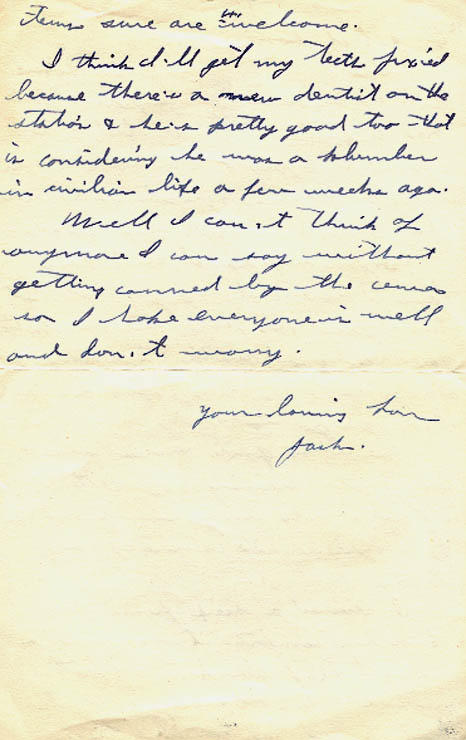 items sure are welcome.
I think I'll get my teeth fix'ed
because there's a new dentist on the
station & he's pretty good too that
is considering he was a plumber
in civilian life a few weeks ago.
Well I can't think of
anymore I can say without
getting canned by the censor
so I hope everyone is well
and don't worry.
Your loving son
Jack.